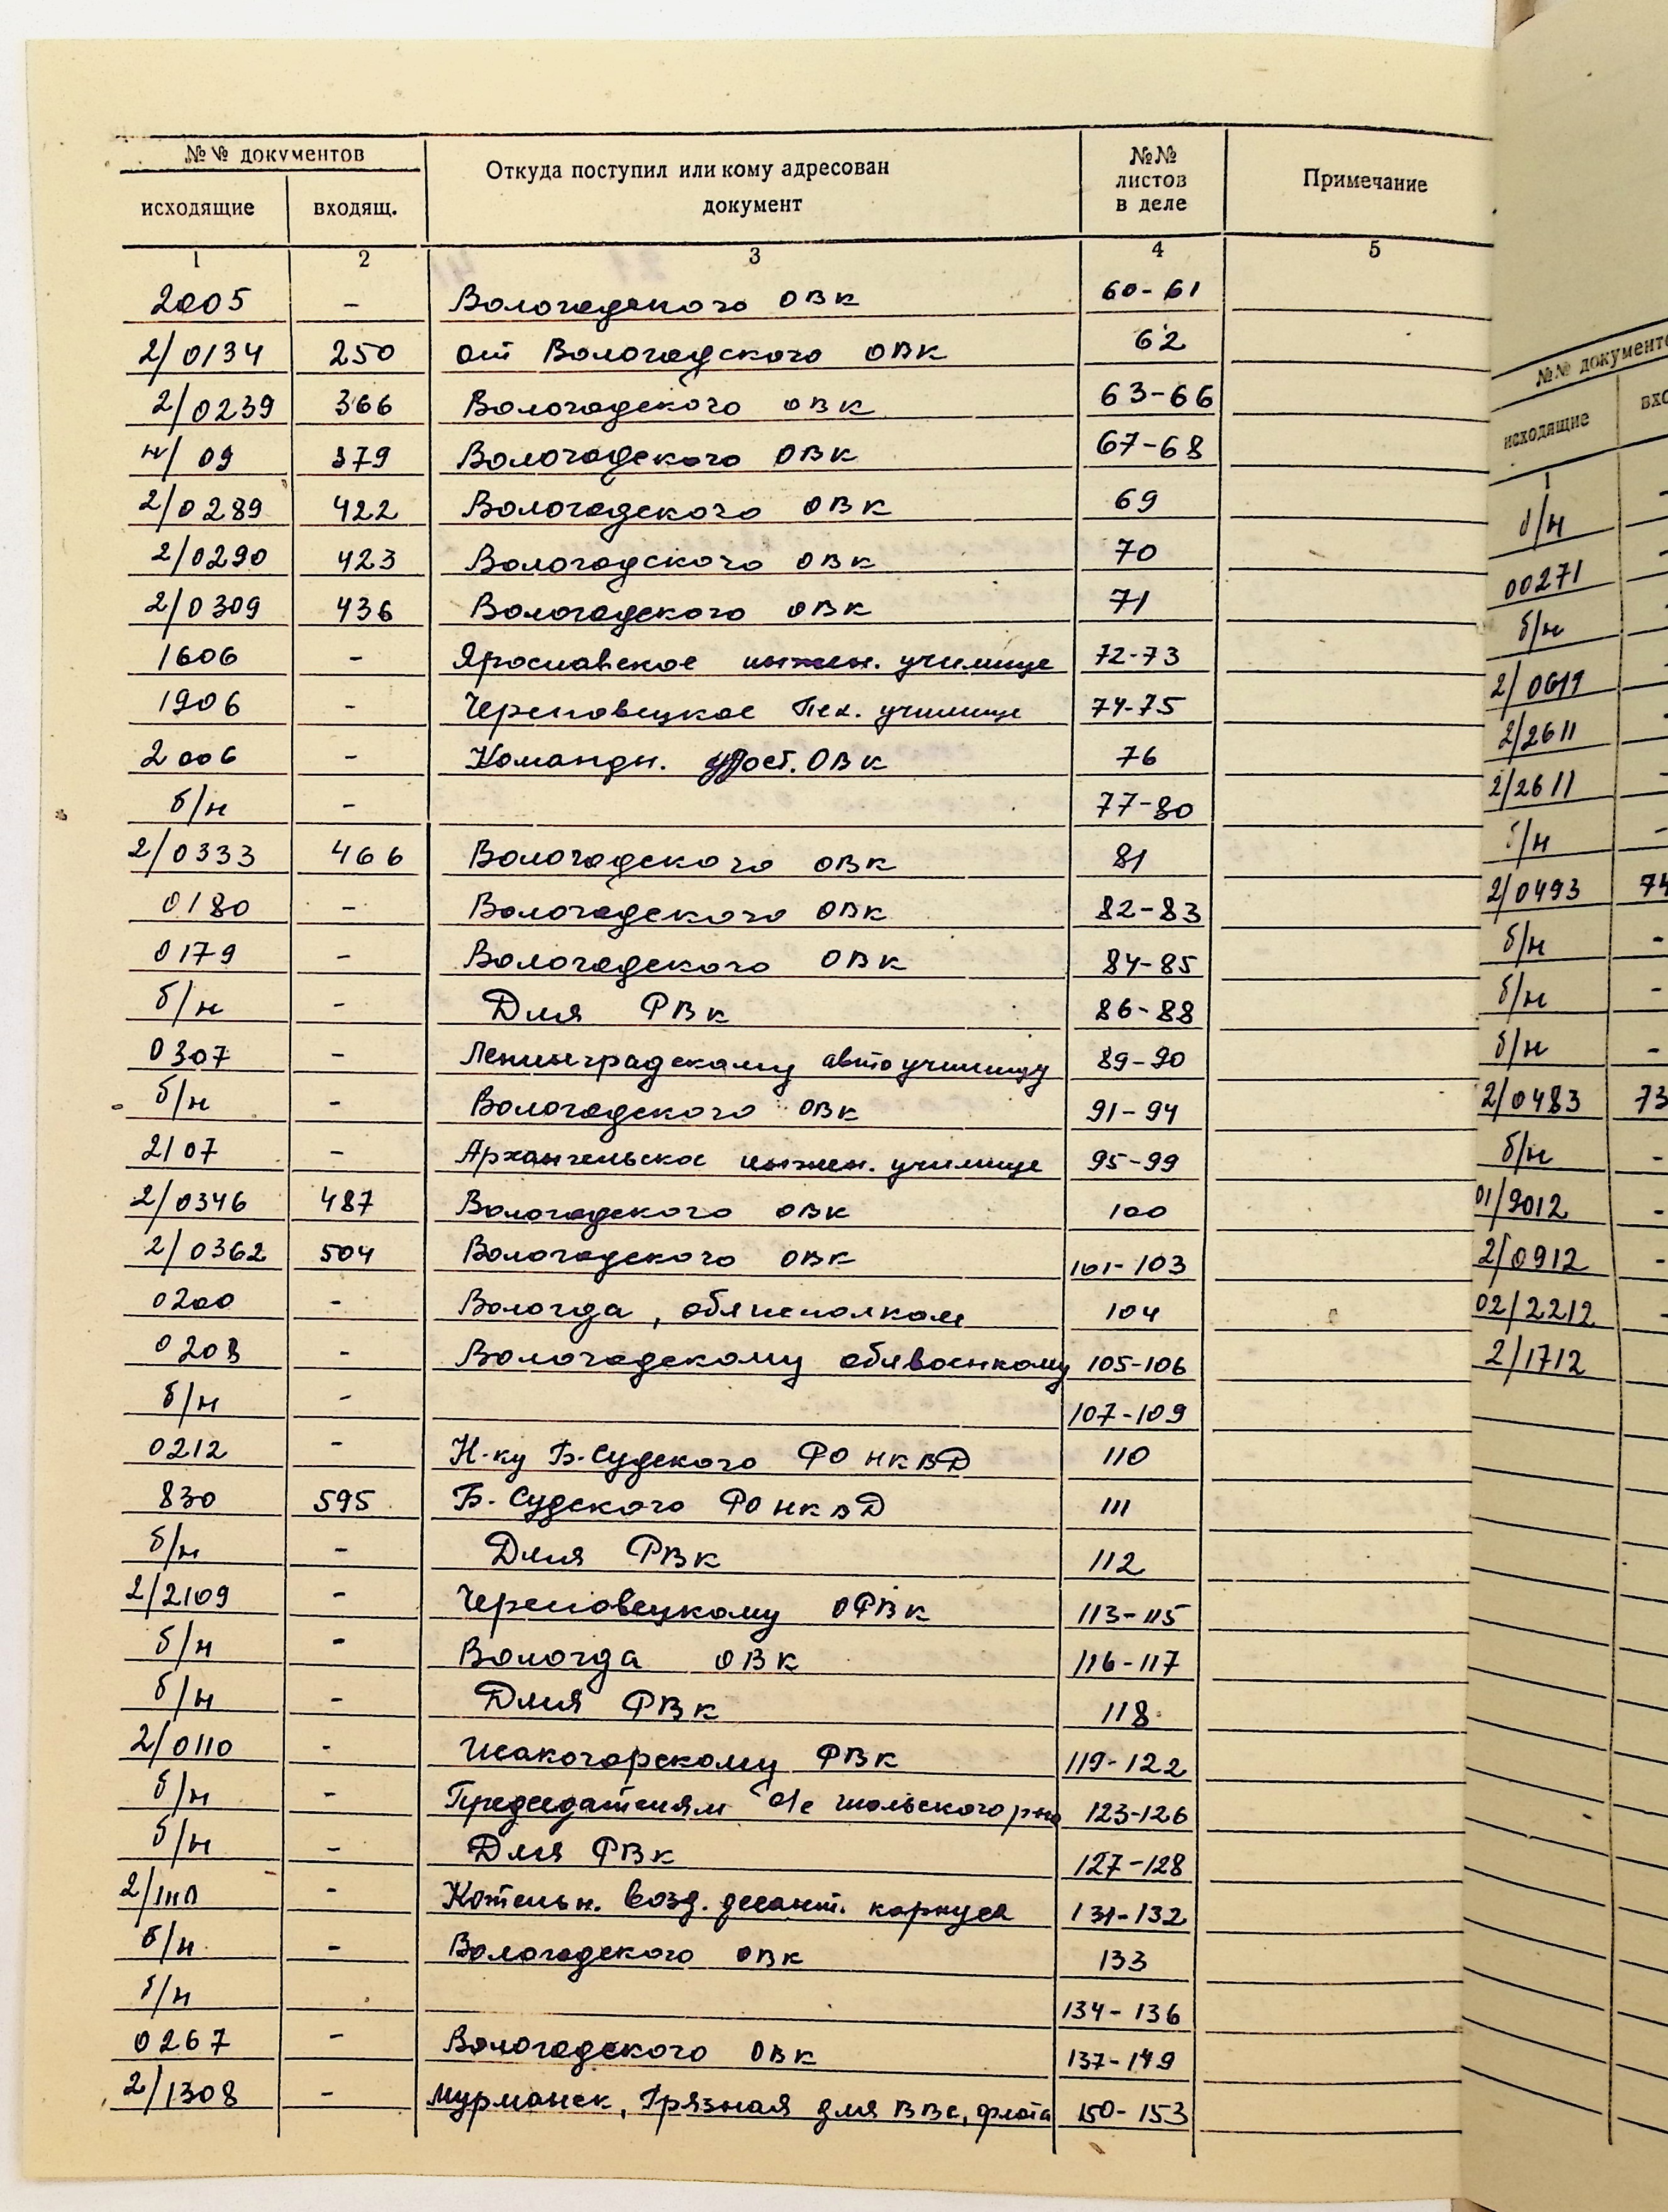 №№ документов
Откуда поступил или кому адресован документ
№№ листов в деле
Примечание
исходящие входящ.
1 2 3 4 5
2005 - Вологодского ОВК 60-61
2/0134 250 от Вологодского ОВК 62
2/0239 366 Вологодского ОВК 63-66
09 379 Вологодского ОВК 67-68
2/0289 422 Вологодского ОВК 69
2/0290 423 Вологодского ОВК 70
2/0309 436 Вологодского ОВК 71
1606 - Ярославское инжен. училище 72-73
1906 - Череповецкое Пех. училище 74-75
2006 - Командн. ОВК 76
б/н - 77-80
2/0333 466 Вологодского ОВК 81
0180 - Вологодского ОВК 82-83
0179 - Вологодского ОВК 84-85
б/н - Для РВК 86-88
0307 - Ленинградскому автоучилищу 89-90
б/н - Вологодского ОВК 91-94
2107 - Архангельское инжен. училище 95-99
2/0346 487 Вологодского ОВК 100
2/0362 504 Вологодского ОВК 101-103
0200 - Вологда, облисполком 104
0208 - Вологодскому облвоенкому 105-106
б/н - 107-109
0212 - Н-ку Б-Судского РО НКВД 110
830 595 Б. Судского РО НКВД 111
б/н - Для РВК 112
2/2109 - Череповецкому ОРВК 113-115
б/н - Вологда ОВК 116-117
б/н - Для РВК 118
2/0110 - Исакогорскому РВК 119-122
б/н - Председателям 123-126
б/н - Для РВК 127-128
- Котельн. возд. десант. корпуса 131-132
б/н - Вологодского ОВК 133
б/н 134-136
0267 - Вологодского ОВК 137-149
2/1308 - Мурманск, Грязная для ВВС, флота 150-153
№№ документо
исходящие вхо
1
б/н -
00271 -
б/н
2/0611
2/2611
2/2611 -
б/н -
2/0493 74
б/н -
б/н -
б/н -
2/0483 73
б/н -
01/9012 -
2/0912 -
02/2212
2/1712